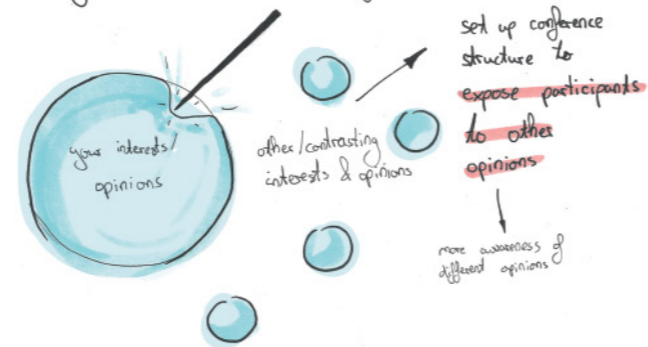 your interests/
opinions
other/contrasting
interests & opinions
set up conference
structure to
expose participants
to other
opinions
more awareness of
different opinions